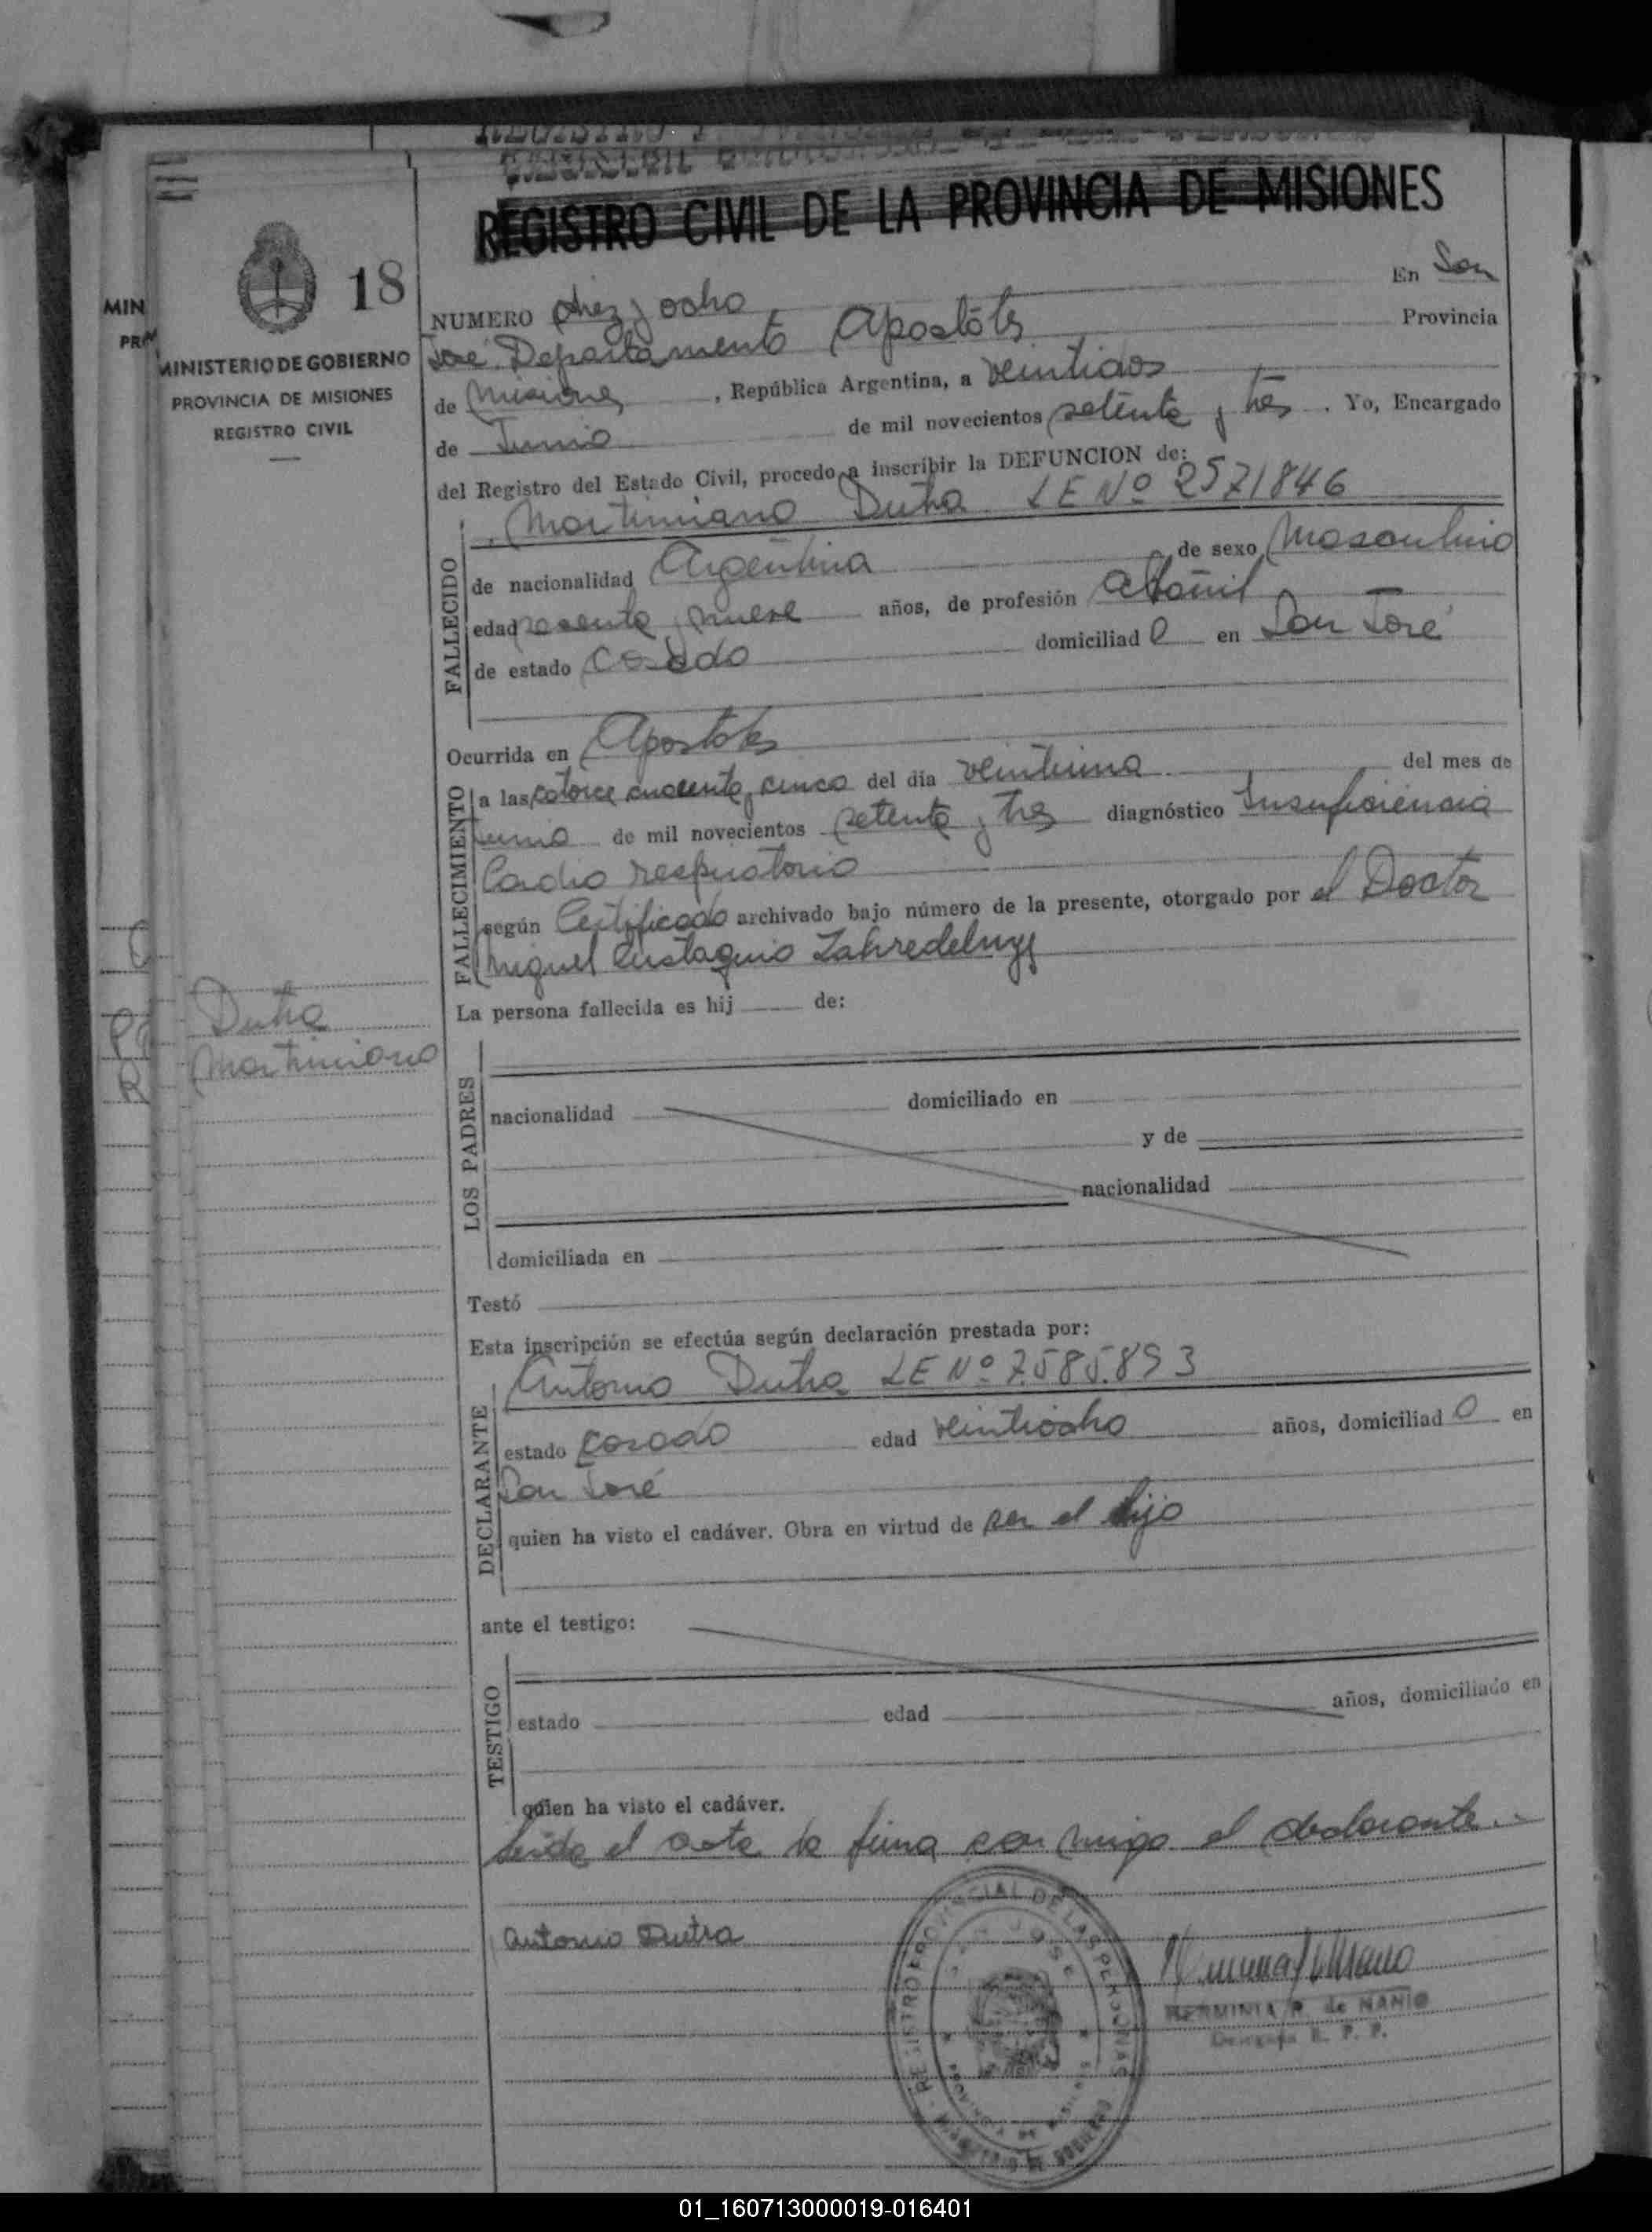 REGISTRO CIVIL DE LA PROVINCIA DE MISIONES
18
MIN
MINISTERIO DE GOBIERNO
PROVINCIA DE MISIONES
REGISTRO CIVIL
NUMERO diez y ocho En San
José Departamento Apostoles Provincia
de Misiones, República Argentina, a veintidos
de Junio de mil novecientos setenta y tres. Yo, Encargado
del Registro del Estado Civil, procedo a inscribir la DEFUNCION de:
Martiniano Dutra LE Nº 2571846
FALLECIDO
de nacionalidad Argentina, de sexo Masculino
edad sesenta y nueve años, de profesión albañil
de estado Casado domiciliado en San José
Ocurrida en Apostoles
FALLECIMIENTO
a las catorce cuarenta y cinco del día veintiuno del mes de
Junio de mil novecientos setenta y tres diagnóstico Insuficiencia
Cardio respiratorio
según Certificado archivado bajo número de la presente, otorgado por el Doctor
Miguel Eustaquio
Dutra
Martiniano
La persona fallecida es hij de:
LOS PADRES
nacionalidad domiciliado en
y de
nacionalidad
domiciliada en
Testó
Esta inscripción se efectúa según declaración prestada por:
DECLARANTE
Antonio Dutra LE Nº 7.585.893
estado Casado edad veintiocho años, domiciliado en
San José
quien ha visto el cadáver. Obra en virtud de ser el hijo
ante el testigo:
TESTIGO
estado edad años, domiciliado en
quien ha visto el cadáver.
Leida el acta la firma conmigo el declarante.-
Antonio Dutra
HERMINIA P. de NANIO
Delegada R. P. P.
01_160713000019-016401